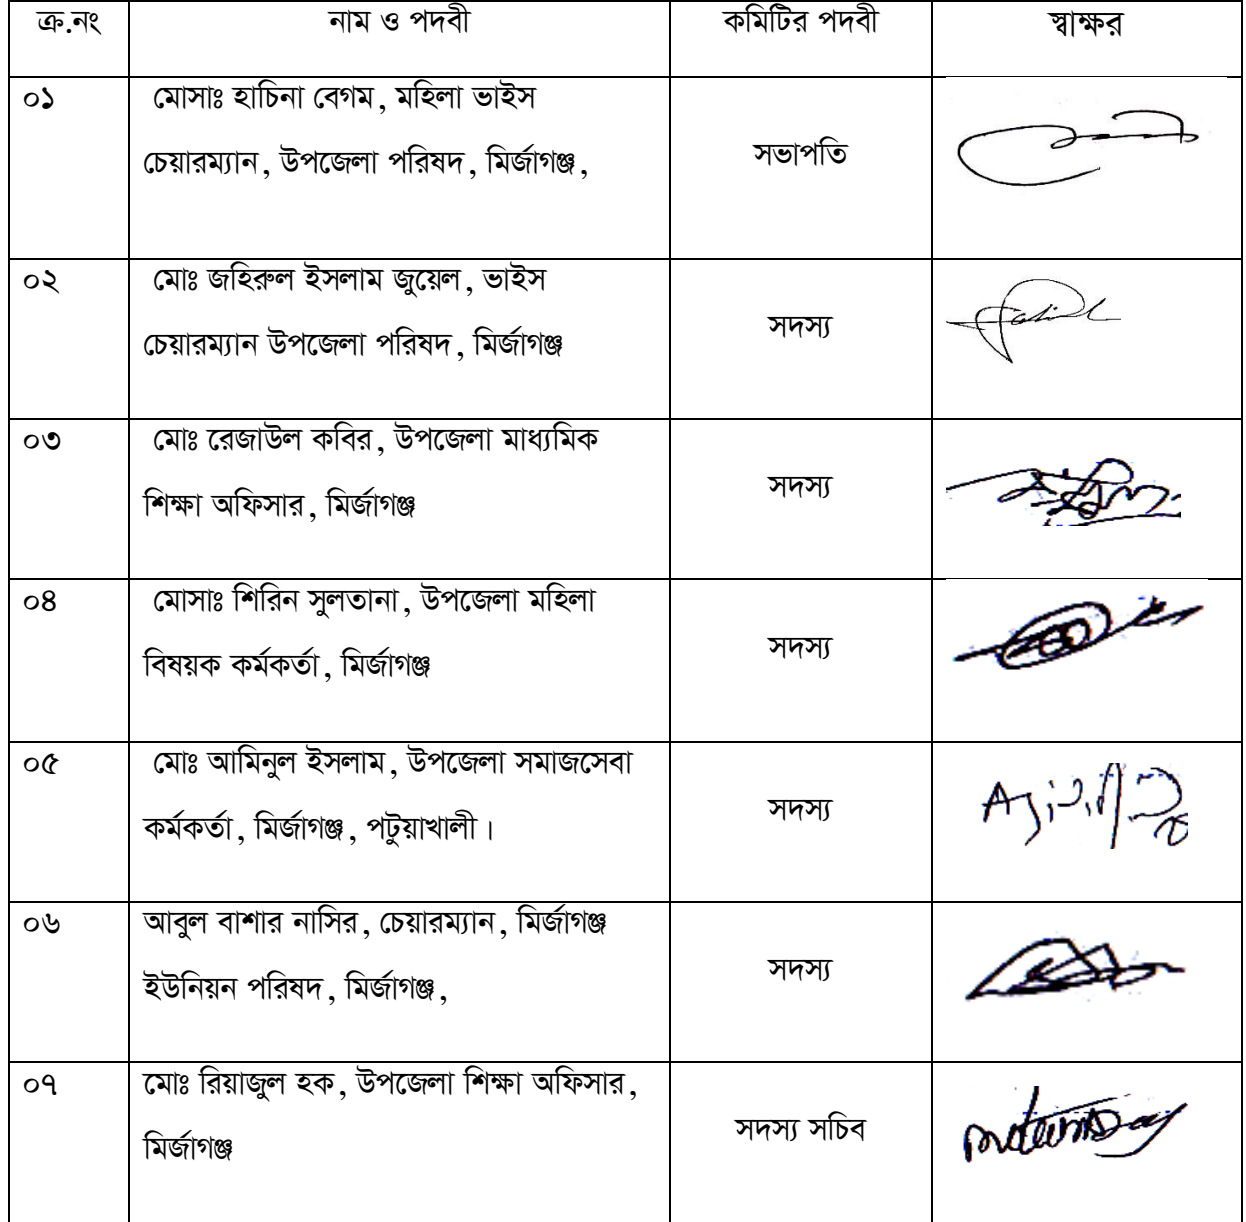 ক্র.নং নাম ও পদবী কমিটির পদবী স্বাক্ষর
০১ মোসাঃ হাচিনা বেগম, মহিলা ভাইস
চেয়ারম্যান, উপজেলা পরিষদ, মির্জাগঞ্জ, সভাপতি
০২ মোঃ জহিরুল ইসলাম জুয়েল, ভাইস
চেয়ারম্যান উপজেলা পরিষদ, মির্জাগঞ্জ সদস্য
০৩ মোঃ রেজাউল কবির, উপজেলা মাধ্যমিক
শিক্ষা অফিসার, মির্জাগঞ্জ সদস্য
০৪ মোসাঃ শিরিন সুলতানা, উপজেলা মহিলা
বিষয়ক কর্মকর্তা, মির্জাগঞ্জ সদস্য
০৫ মোঃ আমিনুল ইসলাম, উপজেলা সমাজসেবা
কর্মকর্তা, মির্জাগঞ্জ, পটুয়াখালী। সদস্য
০৬ আবুল বাশার নাসির, চেয়ারম্যান, মির্জাগঞ্জ
ইউনিয়ন পরিষদ, মির্জাগঞ্জ, সদস্য
০৭ মোঃ রিয়াজুল হক, উপজেলা শিক্ষা অফিসার,
মির্জাগঞ্জ সদস্য সচিব